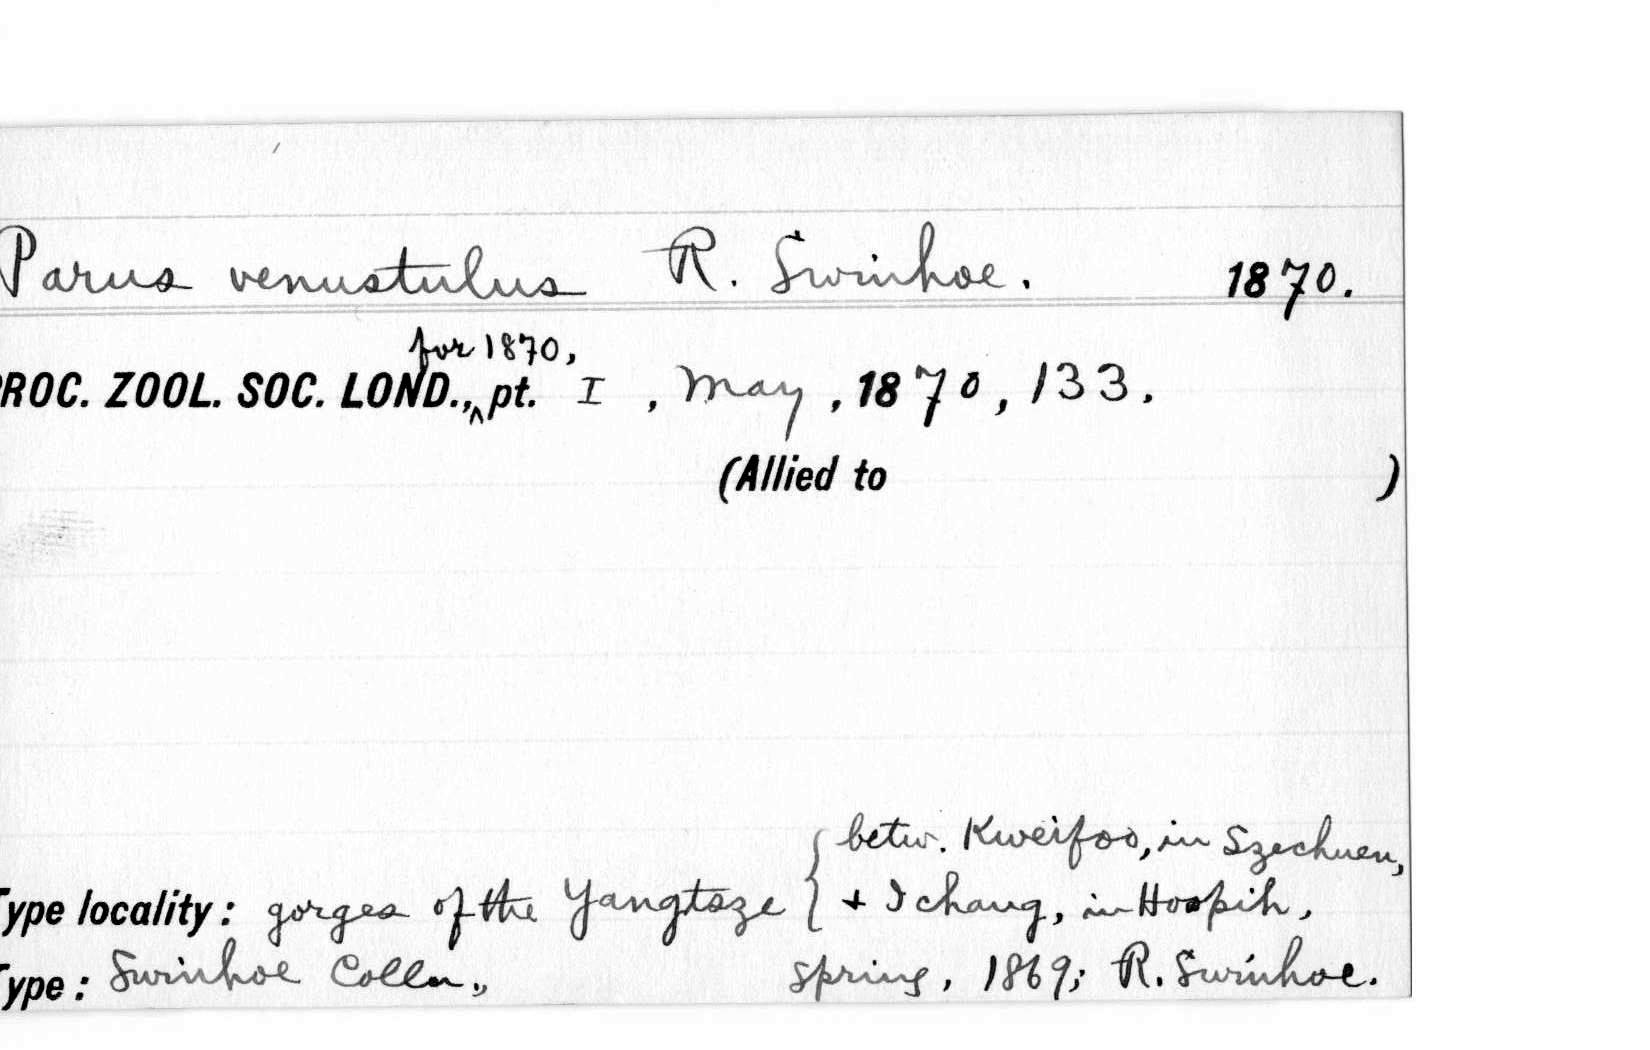 Parus venustulus R. Swinhoe. 1870.
for 1870,
PROC. ZOOL. SOC. LOND., ^ pt. I , May , 1870, 133.
(Allied to )
betw. Kweifoo, in Szechuen,
Type locality: gorges of the Yangtsze { + Ichang, in Hoopih,
Type: Swinhoe Colln., spring, 1869; R. Swinhoe.